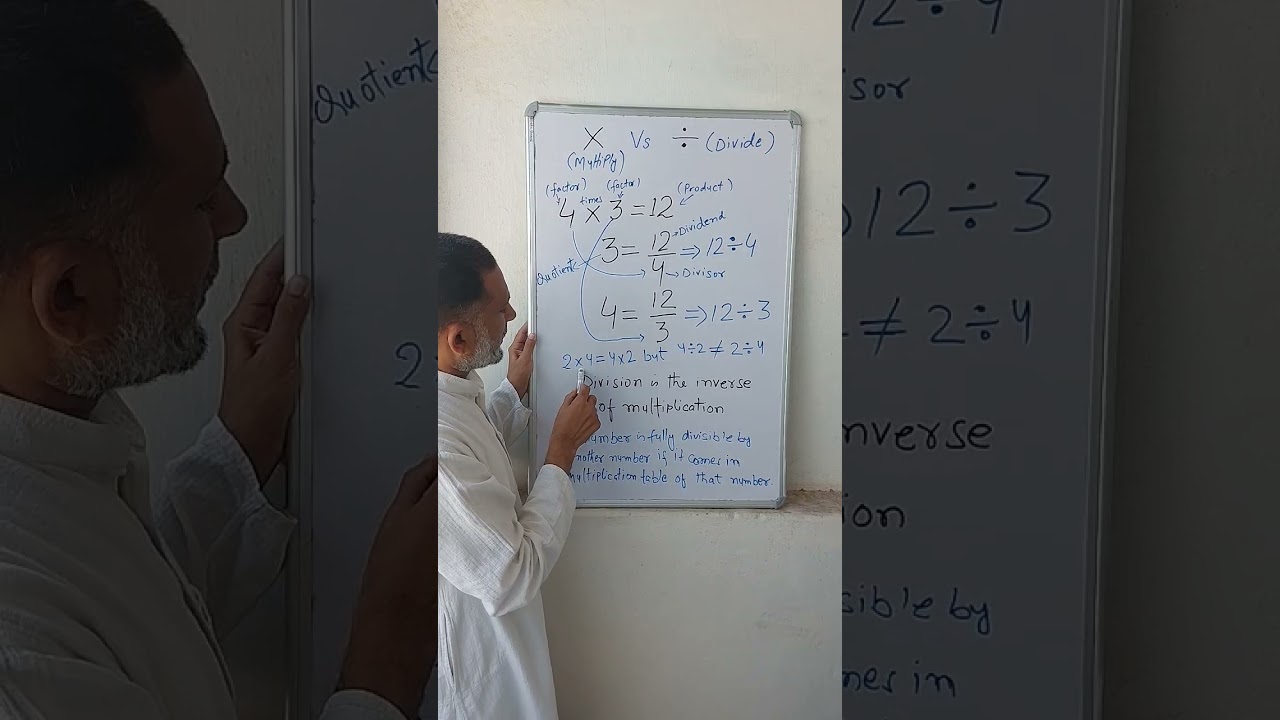 X Vs ÷ (Divide)
(Multiply)
(factor) (factor) (Product)
times
4 X 3 = 12
3 = 12/4 ⇒ 12÷4
Dividend
Quotient
Divisor
4 = 12/3 ⇒ 12÷3
2x4=4x2 but 4÷2 ≠ 2÷4
Division is the inverse
of multiplication
number is fully divisible by
nother number if it comes in
multiplication table of that number.
Quotient
2
12÷4
isor
12÷3
≠ 2÷4
nverse
ion
sible by
mes in